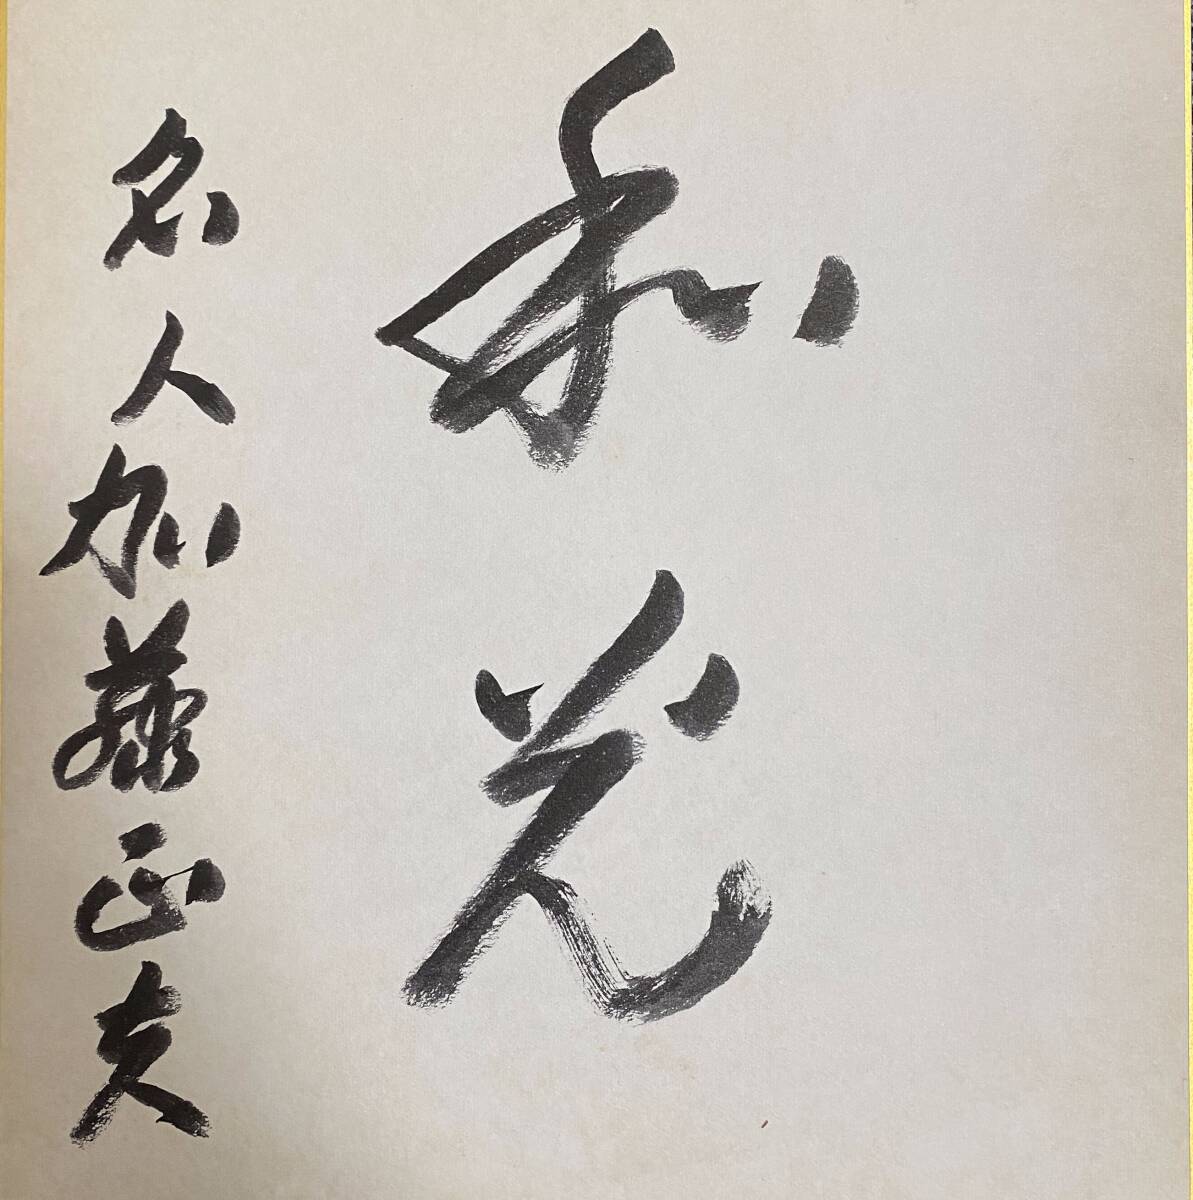 和光
名人加藤正夫